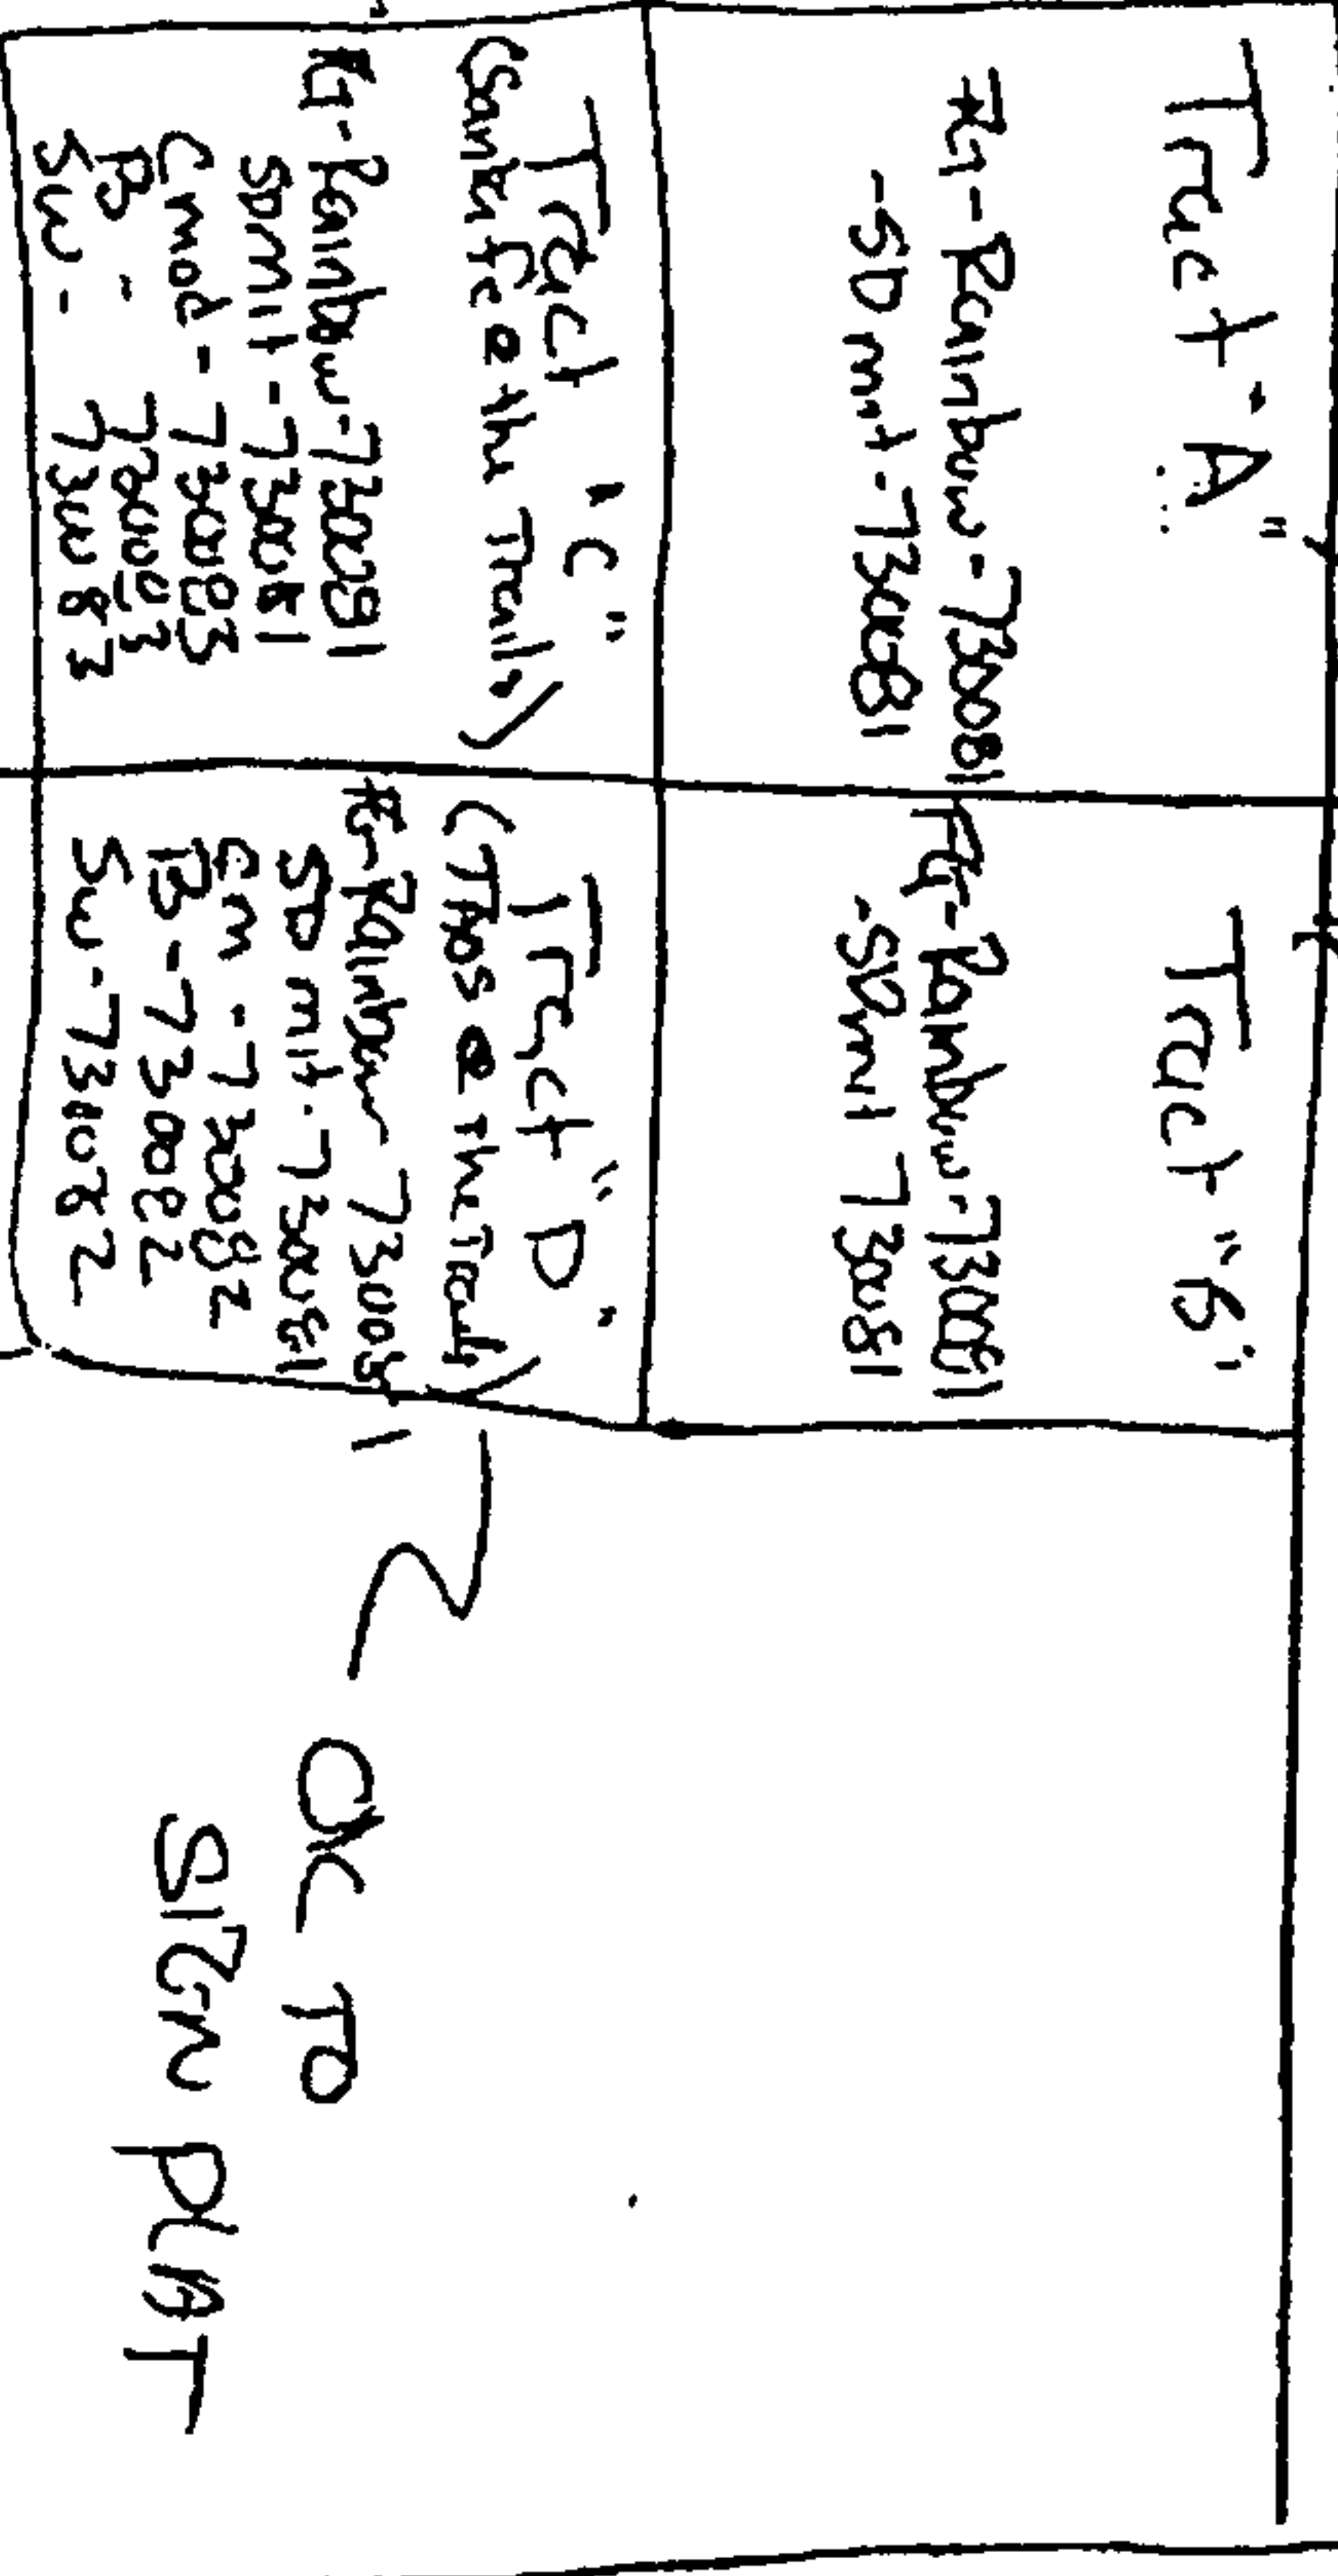 Tract "A"
RG - Rainbow - 730081
- SD mit - 730081
Tract "B"
RG - Rainbow - 730081
- SD mit 730081
Tract "C"
(Santa Fe @ the Trails)
RG - Rainbow - 730081
SD mit - 730081
Cmod - 730083
B - 730083
SW - 730083
Tract "D"
(Taos @ the Trails)
RG - Rainbow 730081
SD mit - 730081
Cm - 730082
B - 730082
SW - 730082
OK TO
SIGN PLAT